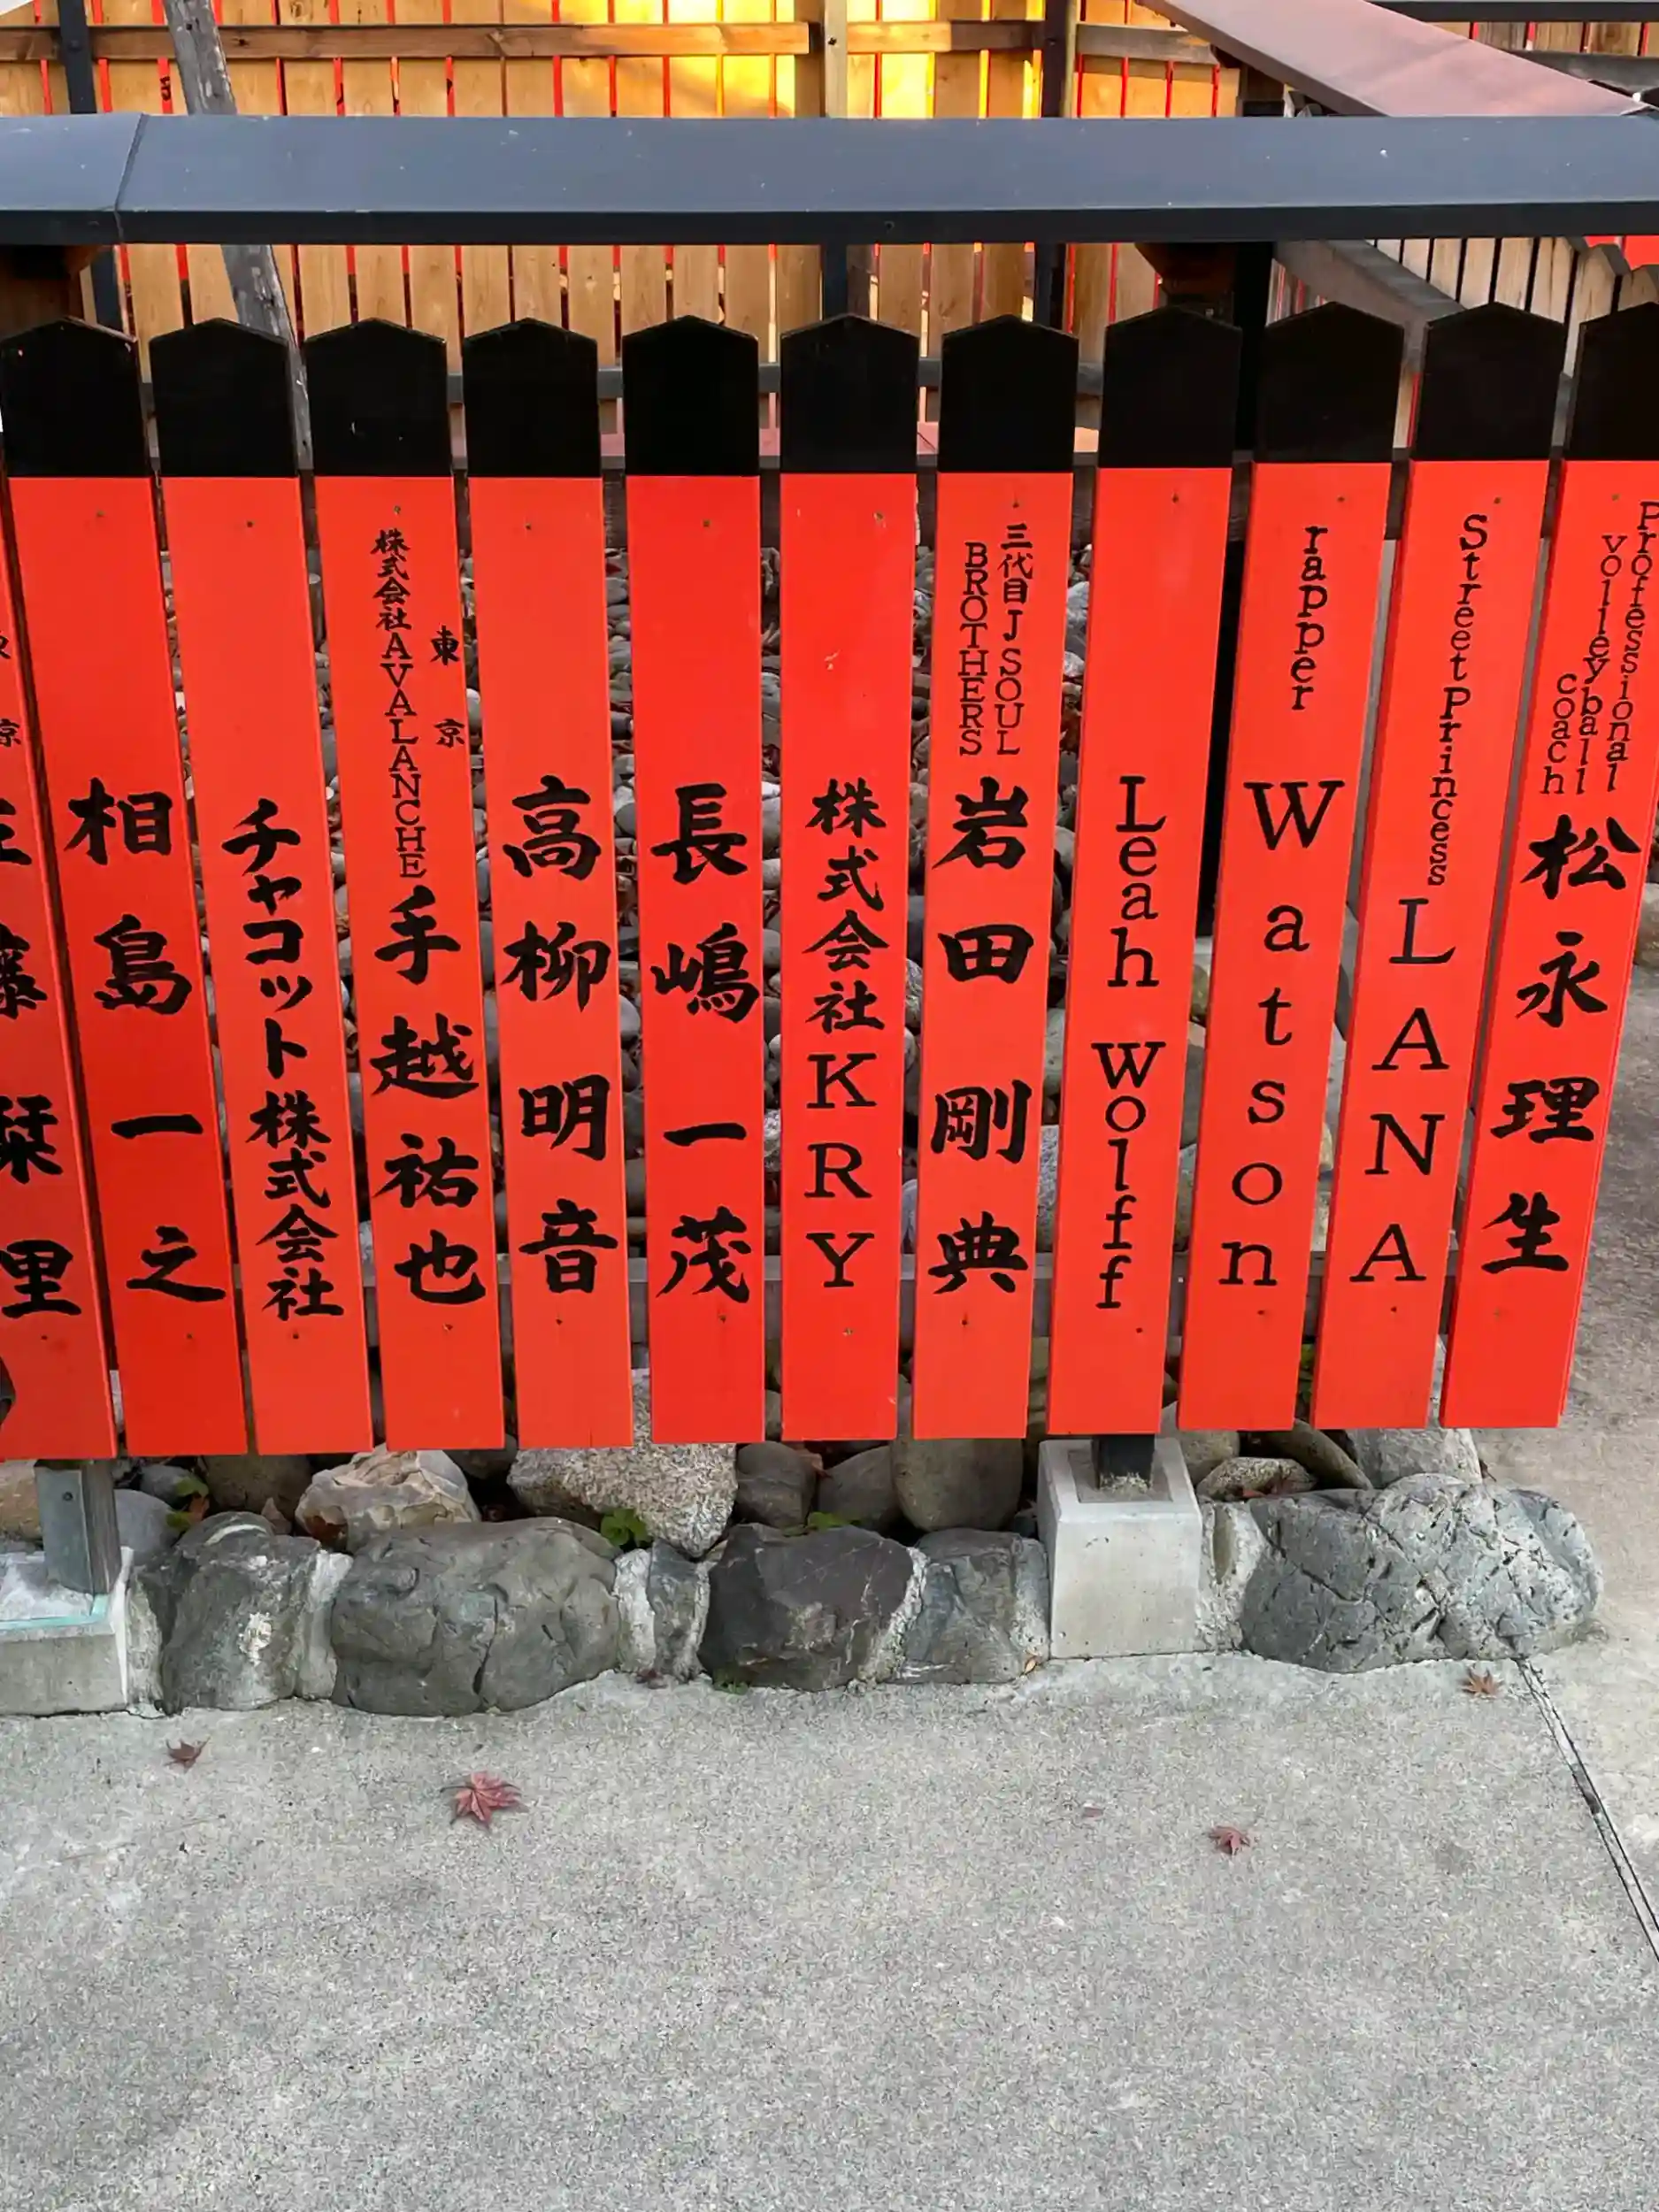 Professional
volleyball
coach
松永理生
Street Princess
LANA
rapper
Watson
Leah wolff
三代目 J SOUL
BROTHERS
岩田剛典
株式会社KRY
長嶋一茂
高柳明音
東京
株式会社AVALANCHE
手越祐也
チャコット株式会社
相島一之